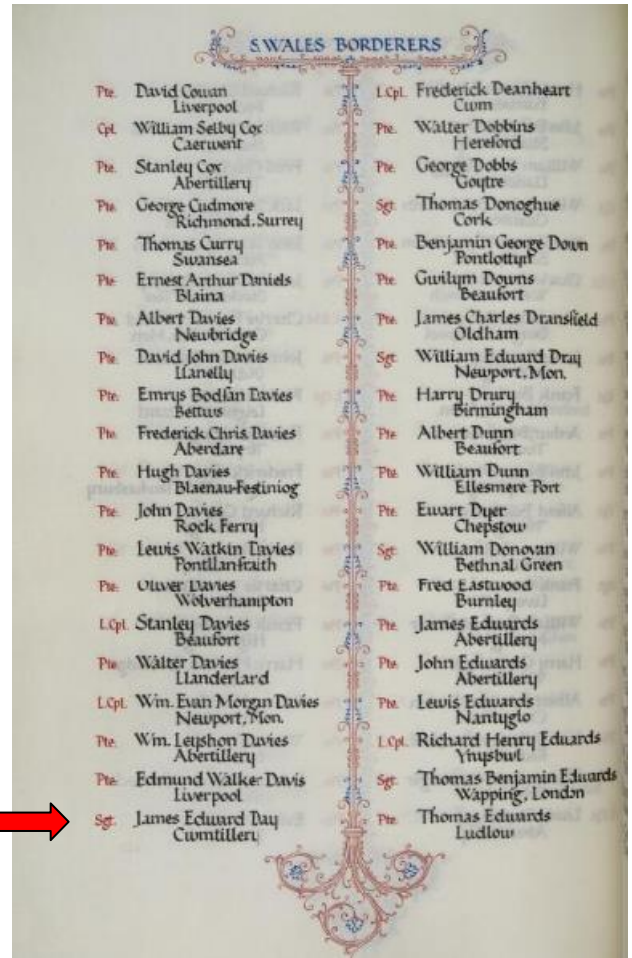 S.WALES BORDERERS
Pte. David Cowan
Liverpool
Cpl. William Selby Cox
Caerwent
Pte. Stanley Cox
Abertillery
Pte. George Cudmore
Richmond, Surrey
Pte. Thomas Curry
Swansea
Pte. Ernest Arthur Daniels
Blaina
Pte. Albert Davies
Newbridge
Pte. David John Davies
Llanelly
Pte. Emrys Bodfan Davies
Bettws
Pte. Frederick Chris. Davies
Aberdare
Pte. Hugh Davies
Blaenau-Festiniog
Pte. John Davies
Rock Ferry
Pte. Lewis Watkin Davies
Pontllanfraith
Pte. Oliver Davies
Wolverhampton
L.Cpl. Stanley Davies
Beaufort
Pte. Walter Davies
Llanderlard
L.Cpl. Wm. Evan Morgan Davies
Newport, Mon.
Pte. Wm. Leyshon Davies
Abertillery
Pte. Edmund Walker Davis
Liverpool
Sgt. James Edward Day
Cwmtillery
L.Cpl. Frederick Deanheart
Cwm
Pte. Walter Dobbins
Hereford
Pte. George Dobbs
Goytre
Sgt. Thomas Donoghue
Cork
Pte. Benjamin George Down
Pontlottyn
Pte. Gwilym Downs
Beaufort
Pte. James Charles Dransfield
Oldham
Sgt. William Edward Dray
Newport, Mon.
Pte. Harry Drury
Birmingham
Pte. Albert Dunn
Beaufort
Pte. William Dunn
Ellesmere Port
Pte. Ewart Dyer
Chepstow
Sgt. William Donovan
Bethnal Green
Pte. Fred Eastwood
Burnley
Pte. James Edwards
Abertillery
Pte. John Edwards
Abertillery
Pte. Lewis Edwards
Nantyglo
L.Cpl. Richard Henry Edwards
Ynysbwl
Sgt. Thomas Benjamin Edwards
Wapping, London
Pte. Thomas Edwards
Ludlow